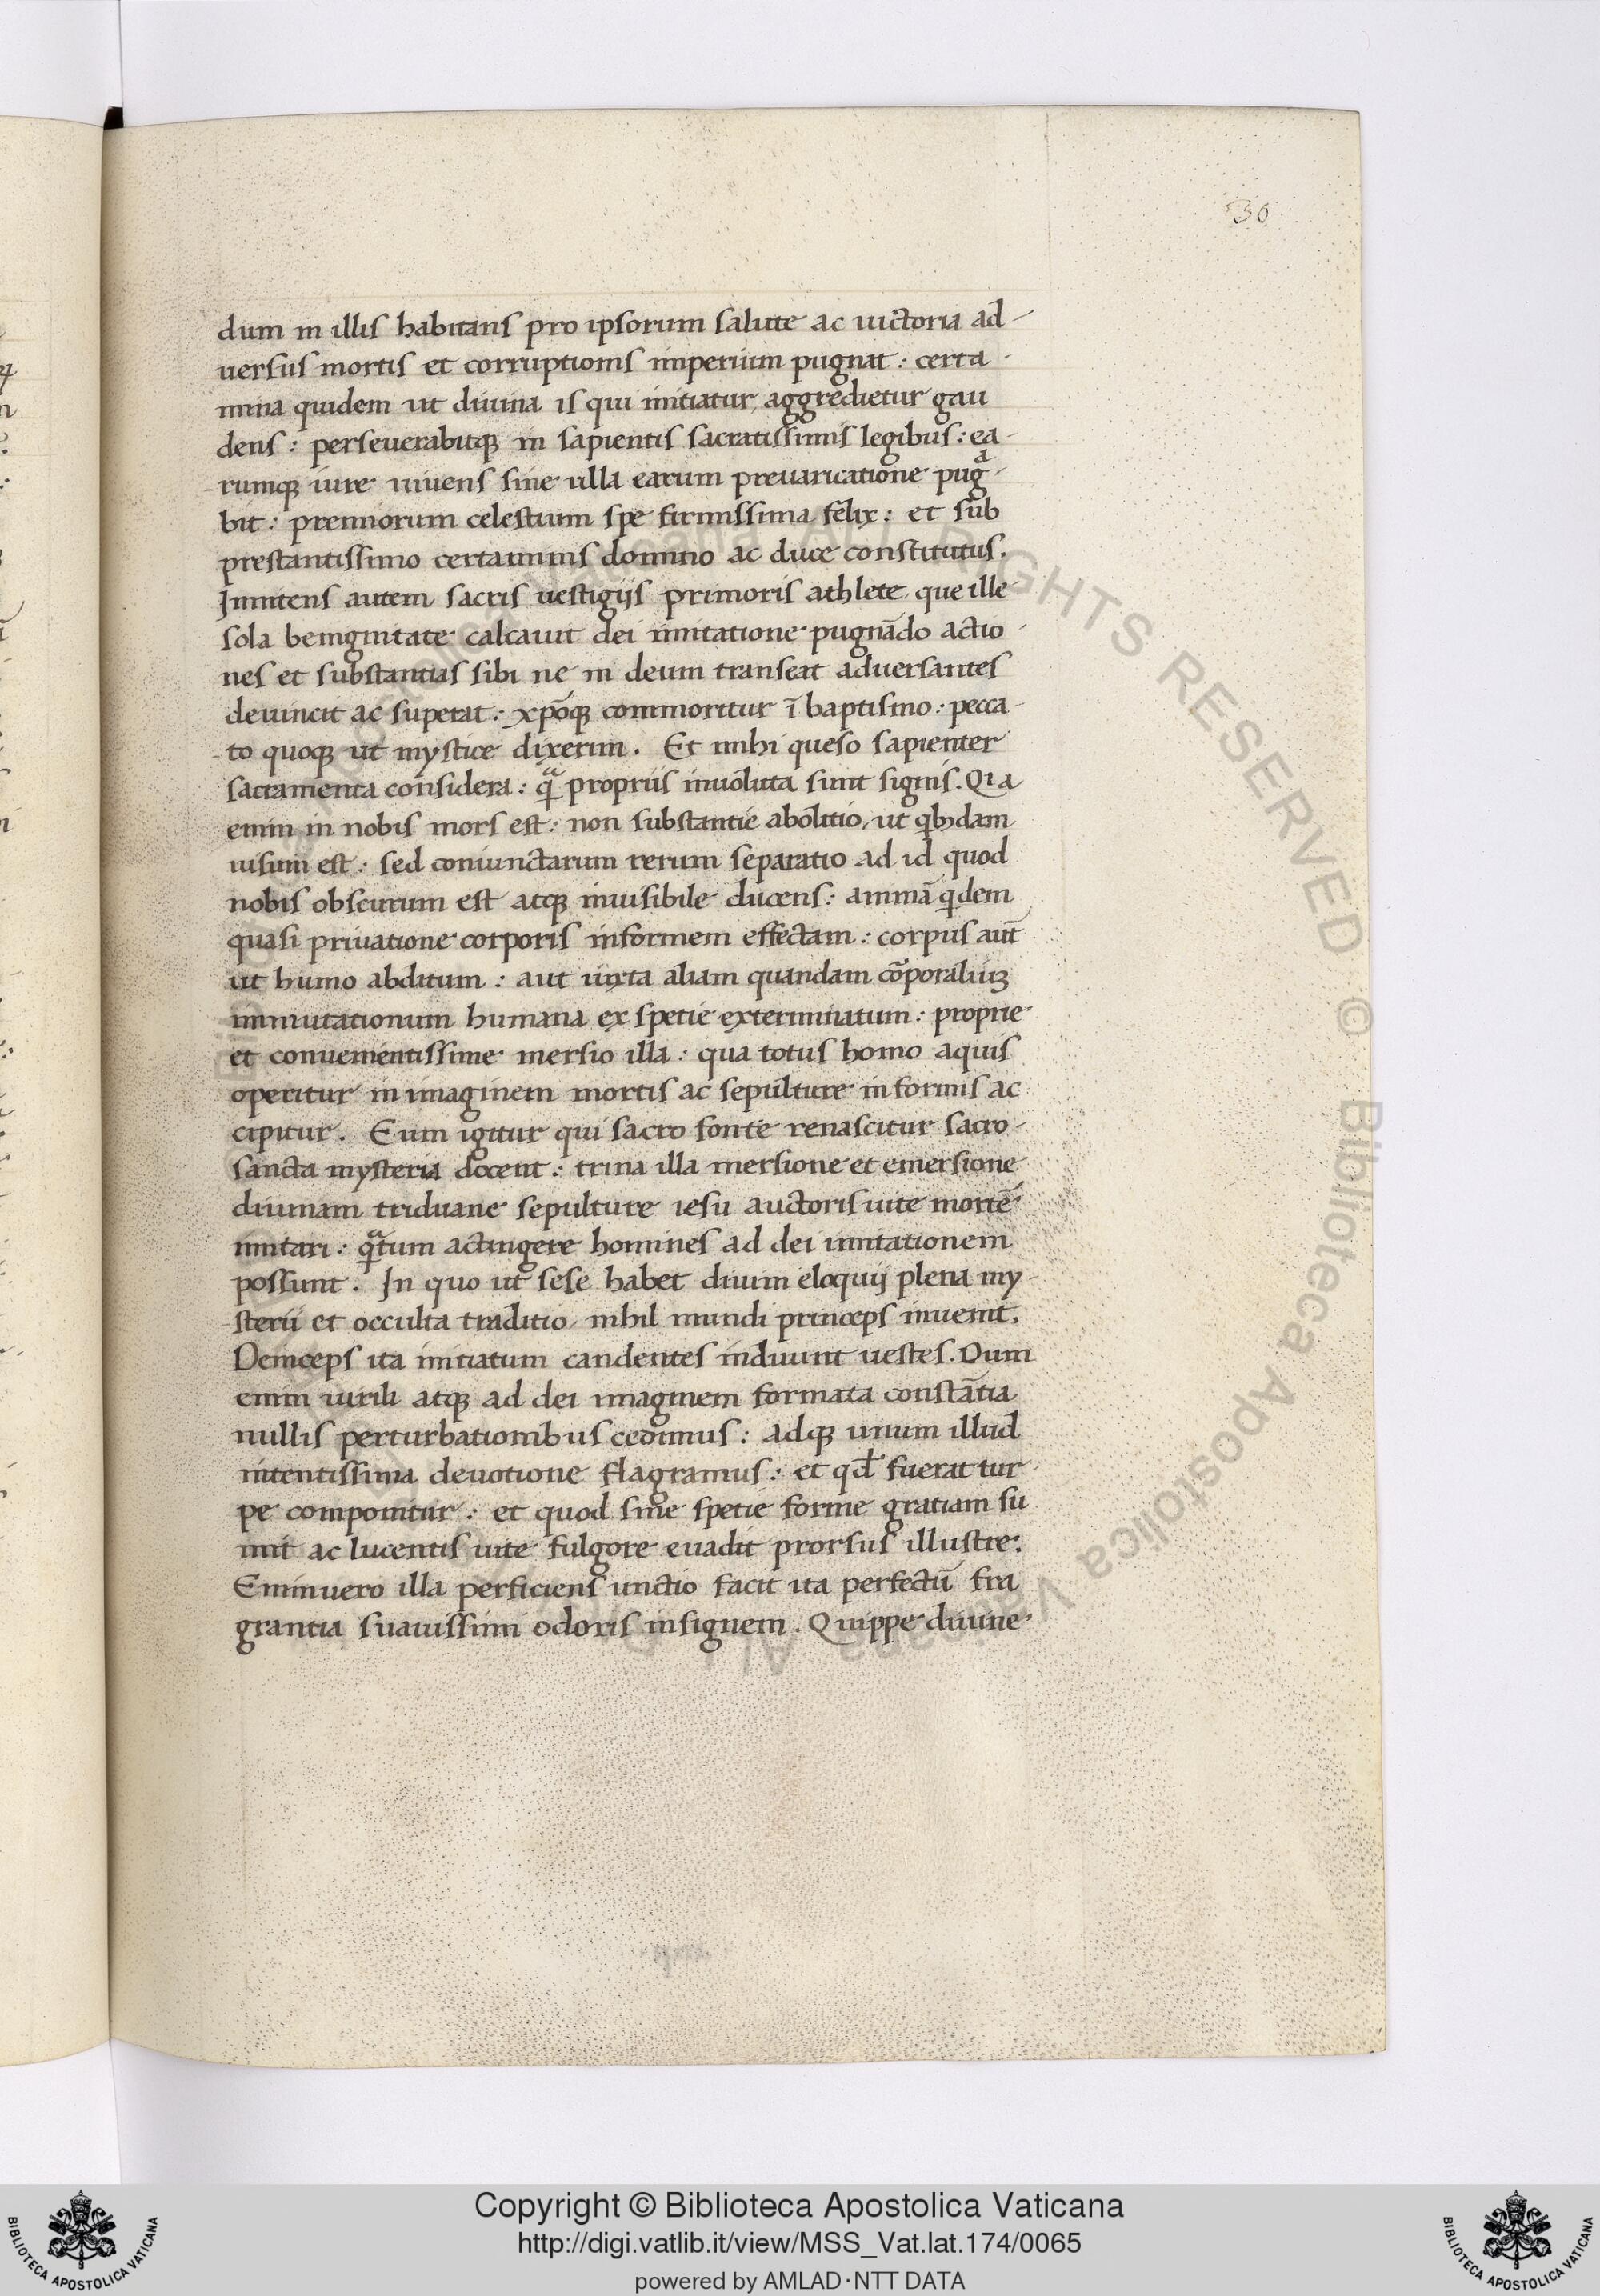 30
dum in illis habitans pro ipsorum salute ac uictoria ad-
uersus mortis et corruptionis imperium pugnat: certa-
mina quidem ut diuina is qui initiatur, aggredietur gau
dens: perseuerabitqꝫ in sapientis sacratissimis legibus: ea-
-rumqꝫ iure uiuens sine ulla earum preuaricatione pugᵃ-
bit: premiorum celestium spe firmissima felix: et sub
prestantissimo certaminis domino ac duce constitutus.
Innitens autem sacris uestigijs primoris athlete, que ille
sola benignitate calcauit dei imitatione pugnādo actio-
nes et substantias sibi ne in deum transeat aduersantes
deuincit ac superat: xp̄oqꝫ commoritur ī baptismo: pecca-
-to quoqꝫ ut mystice dixerim. Et mihi queso sapienter
sacramenta considera: qᵃ̄ propriis inuoluta sunt signis. Qia
enim in nobis mors est: non substantie abolitio, ut qbꝫdam
uisum est: sed coniunctarum rerum separatio ad id quod
nobis obscurum est atqꝫ inuisibile ducens: animā qdem
quasi priuatione corporis informem effectam: corpus aut̄
ut humo abditum: aut iuxta aliam quandam cōrporaliuꝫ
immutationum humana ex spetie exterminatum: proprie
et conuenientissime mersio illa: qua totus homo aquis
operitur in imaginem mortis ac sepulture informis ac
cipitur. Eum igitur qui sacro fonte renascitur sacro-
sancta mysteria docent: trina illa mersione et emersione
diuinam triduane sepulture iesu auctoris uite mortē
imitari: qᵃ̄tum actingere homines ad dei imitationem
possunt. In quo ut sese habet diuini eloquij plena my-
-sterii et occulta traditio, nihil mundi princeps inuenit.
Deinceps ita initiatum candentes induunt uestes. Dum
enim uirili atqꝫ ad dei imaginem formata constātia
nullis perturbationibus cedimus: adqꝫ unum illud
intentissima deuotione flagramus: et qd̄ fuerat tur-
pe componitur: et quod sine spetie forme gratiam su
mit ac lucentis uite fulgore euadit prorsus illustre:
Enimuero illa perficiens unctio facit ita perfectū fra
grantia suauissimi odoris insignem. Quippe diuine
Copyright © Biblioteca Apostolica Vaticana
http://digi.vatlib.it/view/MSS_Vat.lat.174/0065
powered by AMLAD·NTT DATA
BIBLIOTECA APOSTOLICA VATICANA
BIBLIOTECA APOSTOLICA VATICANA